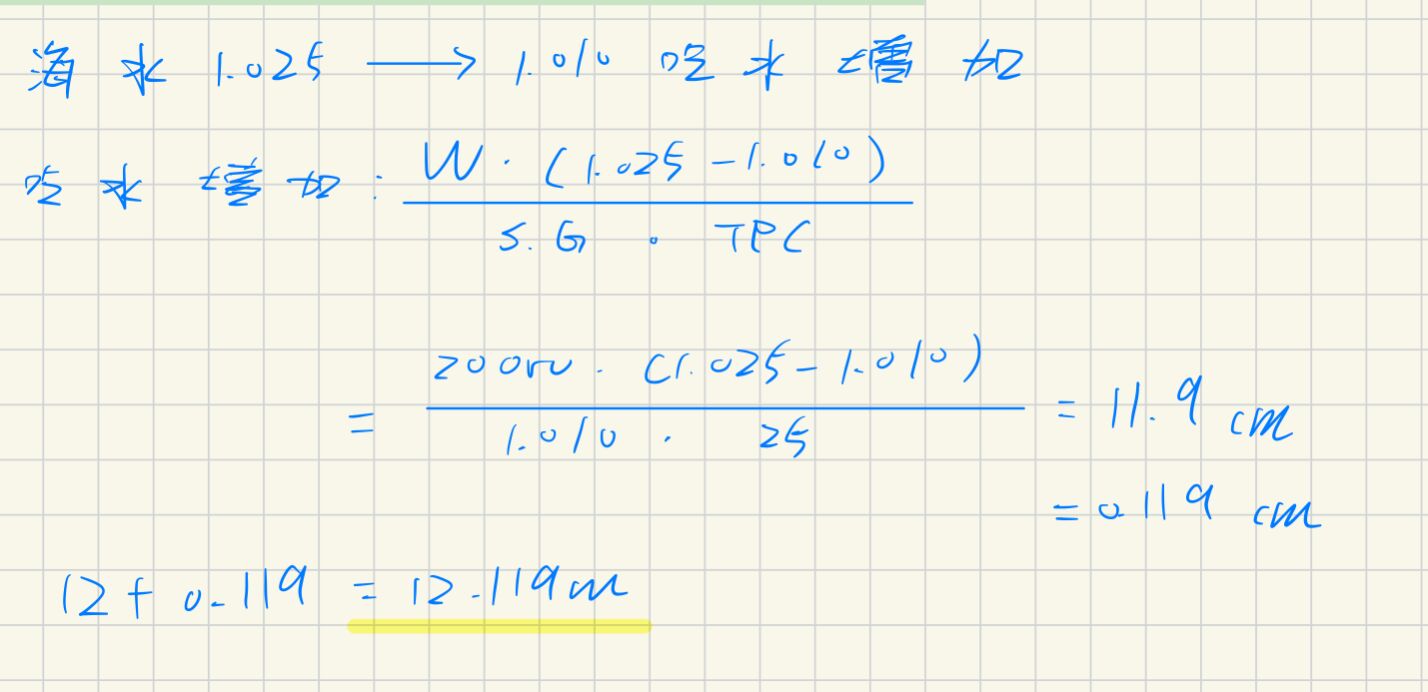 海水 1.025 ⟶ 1.010 吃水增加
吃水增加: W · (1.025 - 1.010)
S.G · TPC
= 20000 · (1.025 - 1.010) = 11.9 cm
1.010 · 25
= 0.119 cm
12 + 0.119 = 12.119m